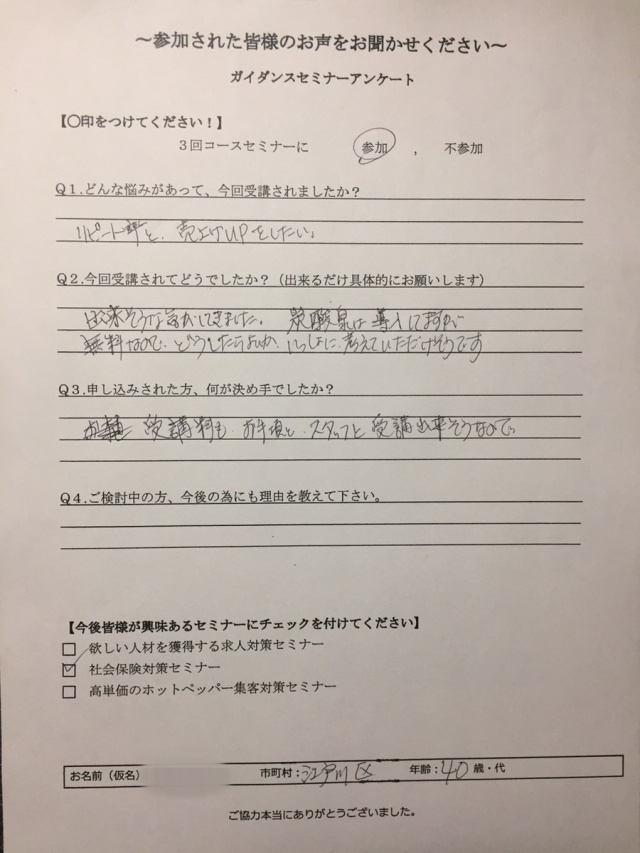 ～参加された皆様のお声をお聞かせください～
ガイダンスセミナーアンケート
【〇印をつけてください！】
３回コースセミナーに 参加 ， 不参加
Ｑ１.どんな悩みがあって、今回受講されましたか？
リピート率と、売上げUPをしたい。
Ｑ２.今回受講されてどうでしたか？（出来るだけ具体的にお願いします）
出来そうな気がしてきました。 炭酸泉は導入してますが
無料なので、どうしたらよいか、いっしょに考えていただけそうです
Ｑ３.申し込みされた方、何が決め手でしたか？
受講料も、お手頃と、スタッフと受講出来そうなので。
Ｑ４.ご検討中の方、今後の為にも理由を教えて下さい。
【今後皆様が興味あるセミナーにチェックを付けてください】
欲しい人材を獲得する求人対策セミナー
社会保険対策セミナー
高単価のホットペッパー集客対策セミナー
お名前（仮名） 市町村：江戸川区 年齢：40 歳・代
ご協力本当にありがとうございました。